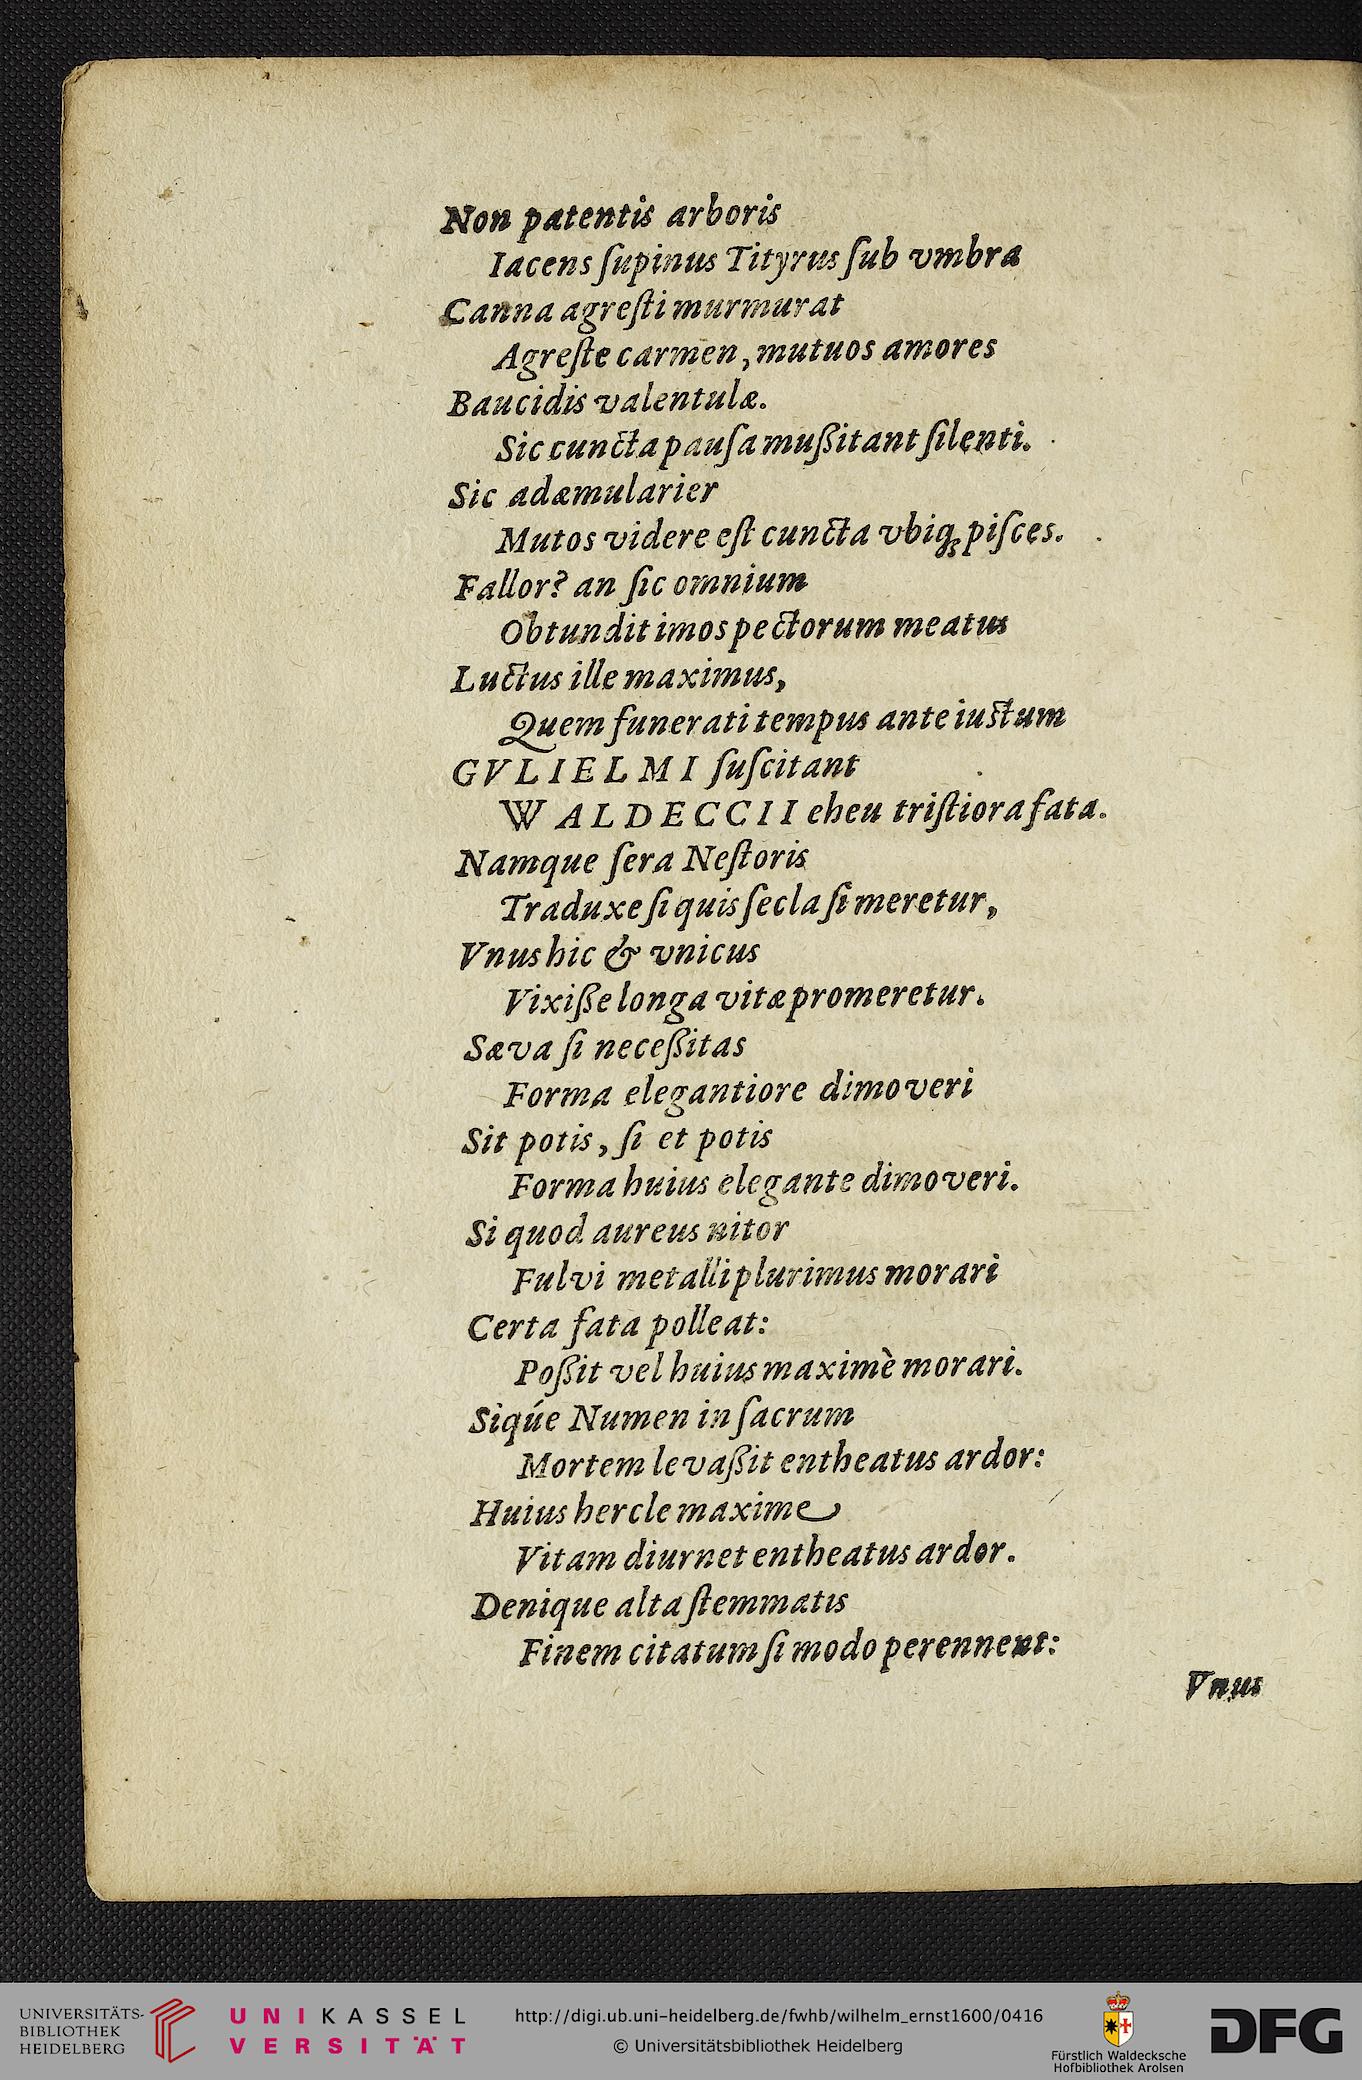 Non patentis arboris
Iacens ſupinus Tityrus ſub vmbra
Canna agreſti murmurat
Agreſte carmen, mutuos amores
Baucidis valentulæ.
Sic cuncta pauſa mußitant ſilenti.
Sic adæmularier
Mutos videre eſt cuncta vbiq́; piſces.
Fallor? an ſic omnium
Obtundit imos pectorum meatus
Luctus ille maximus,
Quem funerati tempus ante iustum
GVLIELMI ſuſcitant
WALDECCII eheu triſtiora fata.
Namque ſera Neſtoris
Traduxe ſi quis ſecla ſi meretur,
Vnus hic & vnicus
Vixiße longa vitæ promeretur.
Sæva ſi neceßitas
Forma elegantiore dimoveri
Sit potis, ſi et potis
Forma huius elegante dimoveri.
Si quod aureus nitor
Fulvi metalli plurimus morari
Certa fata polleat:
Poßit vel huius maximè morari.
Siqúe Numen in ſacrum
Mortem levaßit entheatus ardor:
Huius hercle maxime
Vitam diurnet entheatus ardor.
Denique alta ſtemmatis
Finem citatum ſi modo perennent:
Vnus
UNIVERSITÄTS-
BIBLIOTHEK
HEIDELBERG
UNIKASSEL
VERSITÄT
http://digi.ub.uni-heidelberg.de/fwhb/wilhelm_ernst1600/0416
© Universitätsbibliothek Heidelberg
Fürstlich Waldecksche
Hofbibliothek Arolsen
DFG